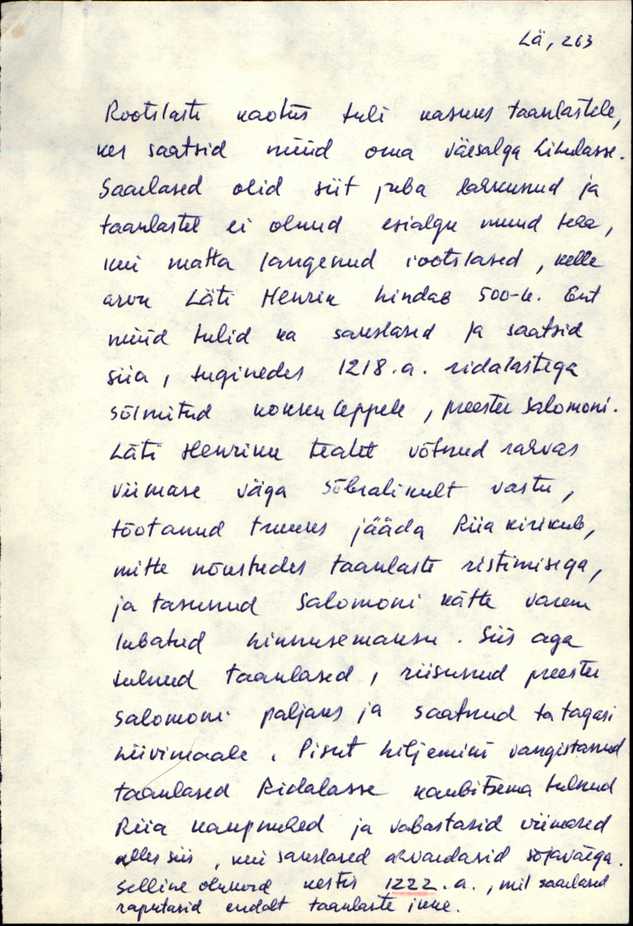 Lä, 263
Rootslaste kaotus tuli kasuks taanlastele,
kes saatsid nüüd oma väesalga Lihulasse.
Saarlased olid siit juba lahkunud ja
taanlastel ei olnud esialgu muud teha,
kui matta langenud rootslased, kelle
arvu Läti Henrik hindab 500-le. Ent
nüüd tulid ka sakslased ja saatsid
siia, tuginedes 1218.a. ridalastega
sõlmitud kokkuleppele, preester Salomoni.
Läti Henriku teatel võtnud rahvas
viimase väga sõbralikult vastu,
tõotanud truuks jääda Riia kirikule,
mitte nõustudes taanlaste ristimisega,
ja tasunud Salomoni kätte varem
lubatud hinnusemaksu. Siis aga
tulnud taanlased, riisunud preester
Salomoni paljaks ja saatnud ta tagasi
Liivimaale. Pisut hiljemini vangistasid
taanlased Ridalasse kaubitsema tulnud
Riia kaupmehed ja vabastasid viimased
alles siis, kui sakslased ähvardasid sõjaväega.
Selline olukord kestis 1222.a., mil saarlased
raputasid endalt taanlaste ikke.